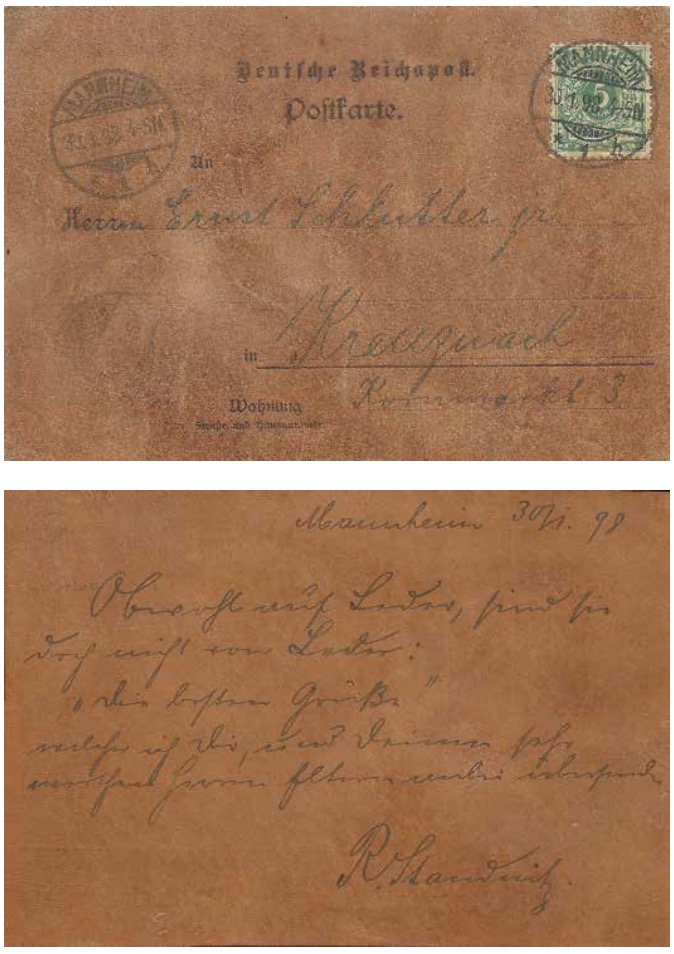 Deutsche Reichspost.
Postkarte.
MANNHEIM
30.1.98. 4-5N
* 1 *
MANNHEIM
5
30.1.98. 4-5N
* 1 b
An
Herrn Ernst Schlutter jr.
in Kreuznach
Wohnung Kornmarkt 3
Straße und Hausnummer
Mannheim 30/1. 98
Obwohl auf Leder, sind sie
doch nicht von Leder:
„die besten Grüße“
welche ich Dir, und Deinen sehr
werthen Herrn Eltern anbei übersende